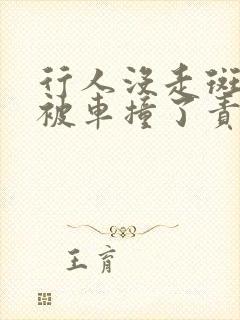 行人没走斑
被车撞了责
王育